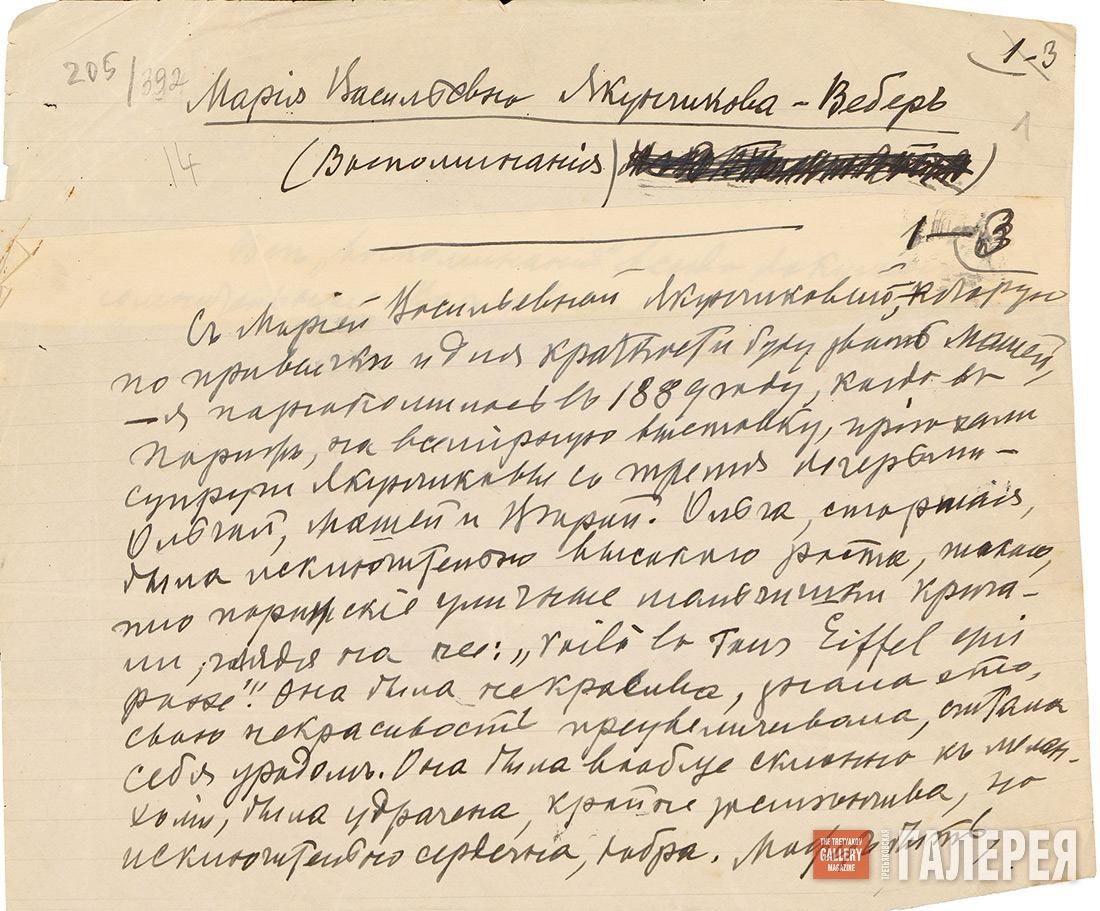 205/392
1-3
Марія Васильевна Якунчикова-Веберъ
1
14
(Воспоминанія)
1—3
Съ Маріей Васильевной Якунчиковой, которую
по привычкѣ и для краткости буду звать Машей,
—я познакомилась въ 1889 году, когда въ
Парижъ, на всемірную выставку, пріѣхали
супруги Якунчиковы съ тремя дочерьми—
Ольгой, Машей и Вѣрой. Ольга, старшая,
была исключительно высокаго роста, такого,
что парижскіе уличные мальчишки крича-
ли, глядя на нее: „Voilà la Tour Eiffel qui
passe!" Она была некрасива, знала это,
свою некрасивость преувеличивала, считала
себя уродомъ. Она была вообще склонна къ мелан-
холіи, была удрачена, крайне застѣнчива, но
исключительно сердечна, добра. Можетъ быть,
THE TRETYAKOV
GALLERY
MAGAZINE
ТРЕТЬЯКОВСКАЯ
ГАЛЕРЕЯ